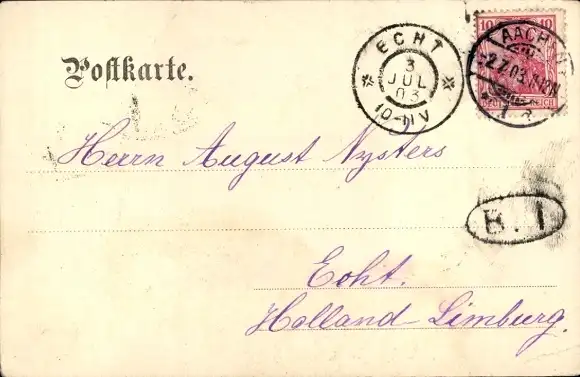 Postkarte.
ECHT
3
JUL
03
10-11V
10 10
AACHEN
2.7.03.
Herrn August Nysters
B. 1
Echt.
Holland-Limburg.